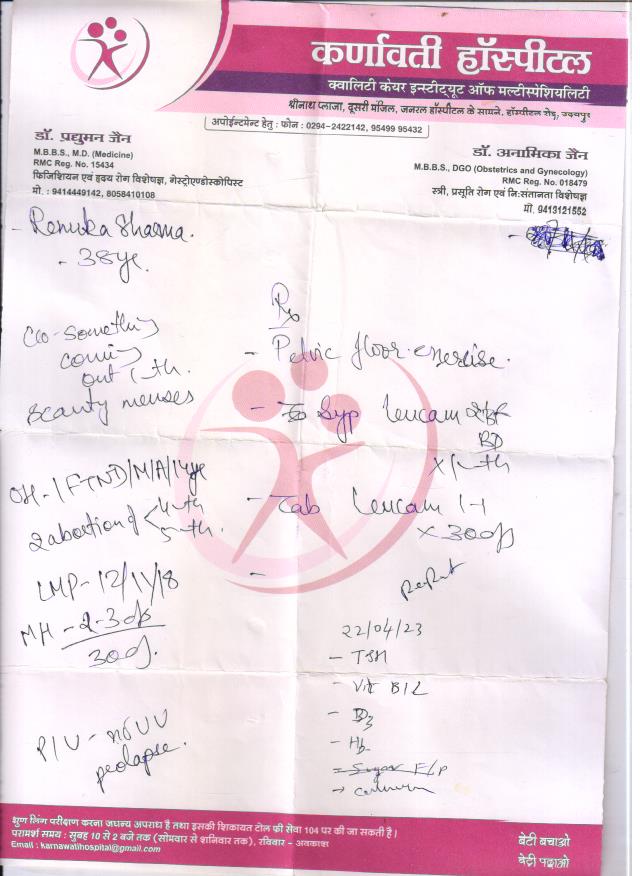 कर्णावती हॉस्पीटल
क्वालिटी केयर इन्स्टीट्यूट ऑफ मल्टीस्पेशियलिटी
श्रीनाथ प्लाजा, दूसरी मंजिल, जनरल हॉस्पीटल के सामने, हॉस्पीटल रोड़, उदयपुर
अपोईन्टमेन्ट हेतु : फोन : 0294-2422142, 95499 95432
डॉ. प्रद्युमन जैन
M.B.B.S., M.D. (Medicine)
RMC Reg. No. 15434
फिजिशियन एवं हृदय रोग विशेषज्ञ, गेस्ट्रोएण्डोस्कोपिस्ट
मो. : 9414449142, 8058410108
डॉ. अनामिका जैन
M.B.B.S., DGO (Obstetrics and Gynecology)
RMC Reg. No. 018479
स्त्री, प्रसूति रोग एवं नि:संतानता विशेषज्ञ
मो. 9413121552
- Renuka Sharma.
- 38 ye.
C/o - Something
coming
out
Scanty menses
OH - 1 FTND/M/A/14ye
2 abortion of
LMP - 12/11/18
MH - 2-3 d
30 d.
P/V -
prolapse.
Rx
- Pelvic floor exercise.
- Syp Leucam
BD
- Tab Leucam 1-1
x 30 d
repeat
22/04/23
- TSH
- Vit B12
- D3
- Hb
- Sugar F/P
→ calcium
भ्रूण लिंग परीक्षण करना जघन्य अपराध है तथा इसकी शिकायत टोल फ्री सेवा 104 पर की जा सकती है।
परामर्श समय : सुबह 10 से 2 बजे तक (सोमवार से शनिवार तक), रविवार - अवकाश
Email : karnawatihospital@gmail.com
बेटी बचाओ
बेटी पढ़ाओ